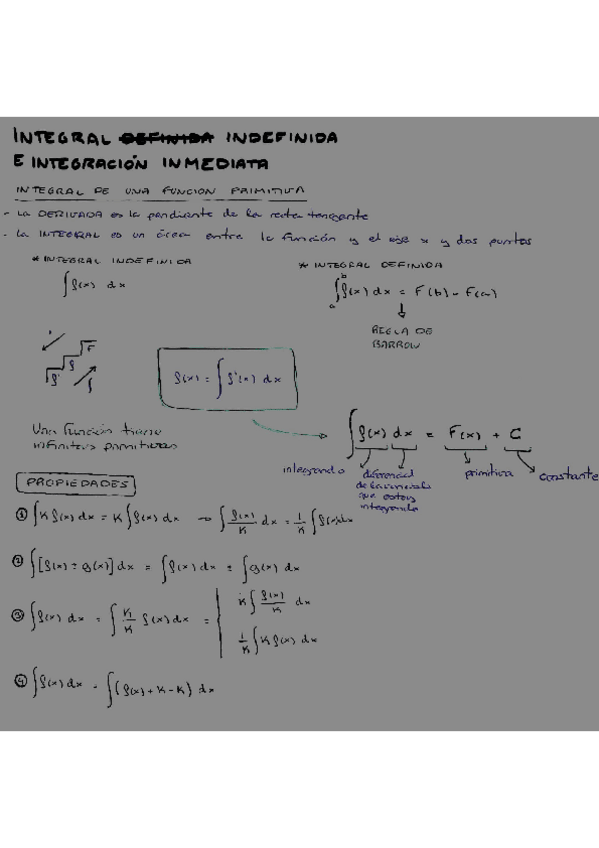 INTEGRAL DEFINIDA INDEFINIDA
E INTEGRACIÓN INMEDIATA
INTEGRAL DE UNA FUNCION PRIMITIVA
- La DERIVADA es la pendiente de la recta tangente
- La INTEGRAL es un área entre la función y el eje x y dos puntos
* INTEGRAL INDEFINIDA
∫ f(x) dx
* INTEGRAL DEFINIDA
∫ₐᵇ f(x) dx = F(b) - F(a)
REGLA DE
BARROW
F
f
f'
∫
f(x) = ∫ f'(x) dx
Una función tiene
infinitas primitivas
∫ f(x) dx = F(x) + C
integrando
diferencial
que estoy
integrando
primitiva
constante
PROPIEDADES
① ∫ K f(x) dx = K ∫ f(x) dx → ∫ f(x)/K dx = 1/K ∫ f(x) dx
② ∫ [f(x) ± g(x)] dx = ∫ f(x) dx ± ∫ g(x) dx
③ ∫ f(x) dx = ∫ K/K f(x) dx =
K ∫ f(x)/K dx
1/K ∫ K f(x) dx
④ ∫ f(x) dx = ∫ (f(x) + K - K) dx